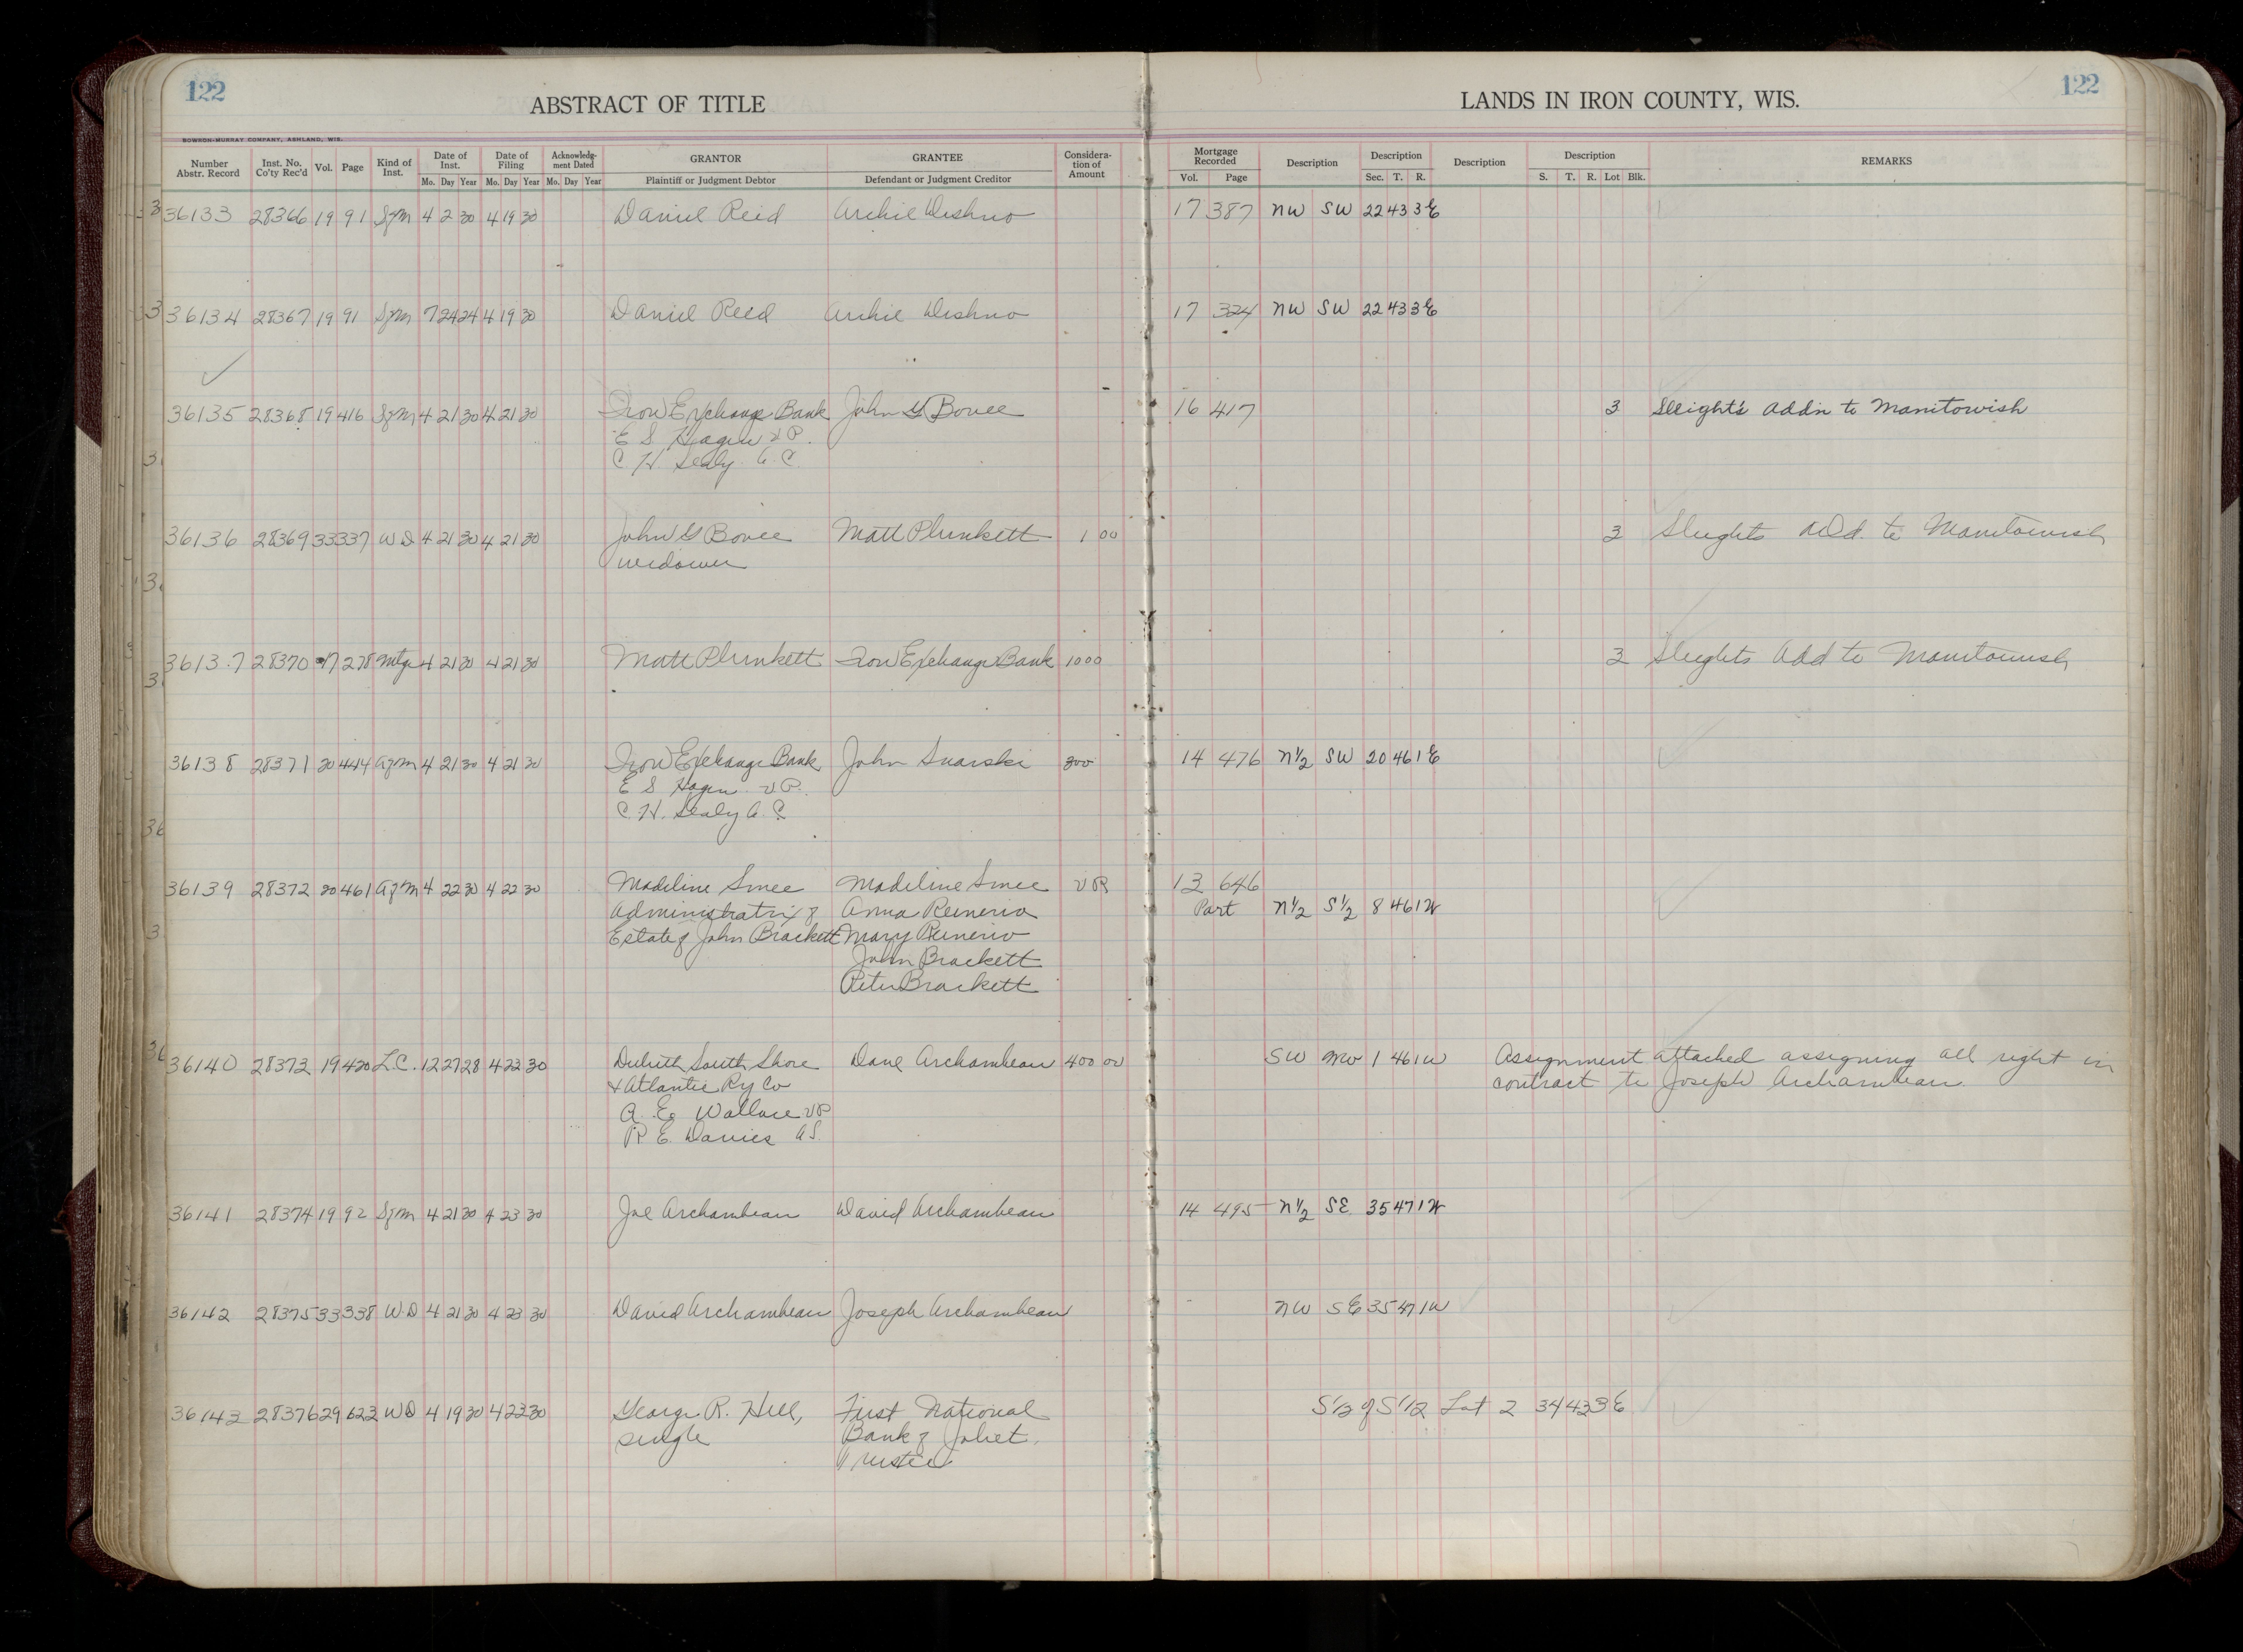 122
ABSTRACT OF TITLE
LANDS IN IRON COUNTY, WIS.
122
BOWRON-MURRAY COMPANY, ASHLAND, WIS.
Number Abstr. Record | Inst. No. Co'ty Rec'd | Vol. | Page | Kind of Inst. | Date of Inst. Mo. Day Year | Date of Filing Mo. Day Year | Acknowledg-ment Dated Mo. Day Year | GRANTOR Plaintiff or Judgment Debtor | GRANTEE Defendant or Judgment Creditor | Considera-tion of Amount | Mortgage Recorded Vol. Page | Description | Description Sec. T. R. | Description | Description S. T. R. Lot Blk. | REMARKS
36133 28366 19 91 Sgm 4 2 30 4 19 30 Daniel Reid Archie Deshno 17 387 NW SW 22 43 3E
36134 28367 19 91 Sgm 7 24 24 4 19 30 Daniel Reed Archie Deshno 17 324 NW SW 22 43 3E
36135 28368 19 416 Sgm 4 21 30 4 21 30 Iron Exchange Bank John G Bovee 16 417 3 Sleight's Addn to Manitowish
E S Hagen V P.
C. H. Sealy A. C.
36136 28369 33 337 W D 4 21 30 4 21 30 John G Bovee Matt Plunkett 1 00 3 Sleights Add. to Manitowish
widower
36137 28370 17 278 Mtge 4 21 30 4 21 30 Matt Plunkett Iron Exchange Bank 1000 3 Sleights Add to Manitowish
36138 28371 20 444 Agm 4 21 30 4 21 30 Iron Exchange Bank John 800 14 476 N½ SW 20 46 1E
E S Hagen V P.
C. H. Sealy A. C.
36139 28372 20 461 Agm 4 22 30 4 22 30 Madeline Smee Madeline Smee V R 13 646
Administratrix of Anna Reinerio Part N½ S½ 8 46 1W
Estate of John Brackett Mary Reinerio
John Brackett
Peter Brackett
36140 28373 19 420 L.C. 12 27 28 4 23 30 Duluth South Shore Dave Archambeau 400 00 SW NW 1 46 1W Assignment attached assigning all right in
& Atlantic Ry Co contract to Joseph Archambeau
A. E. Wallace VP
R E. Davies A S.
36141 28374 19 92 Sgm 4 21 30 4 23 30 Joe Archambeau David Archambeau 14 495 N½ SE 35 47 1W
36142 28375 33 338 W.D 4 21 30 4 23 30 David Archambeau Joseph Archambeau NW SE 35 47 1W
36143 28376 29 623 WD 4 19 30 4 23 30 George R. Hill, First National S½ of S½ Lot 2 34 42 3E
single Bank of Joliet,
Trustee